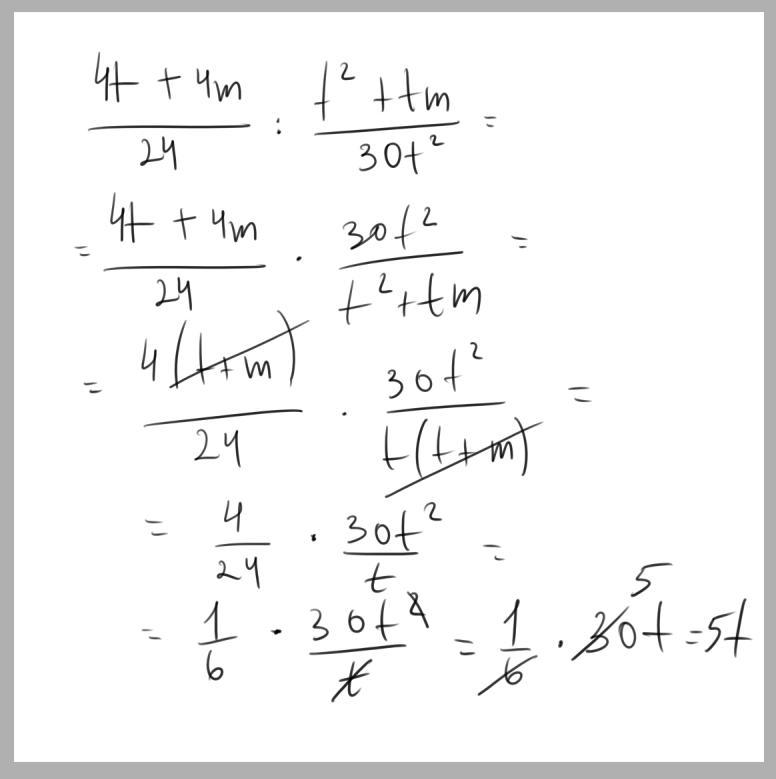 (4t + 4m)/24 : (t² + tm)/30t² =
= (4t + 4m)/24 · 30t²/(t² + tm) =
= 4(t + m)/24 · 30t²/t(t + m) =
= 4/24 · 30t²/t =
= 1/6 · 30t²/t = 1/6 · 30t 5 = 5t